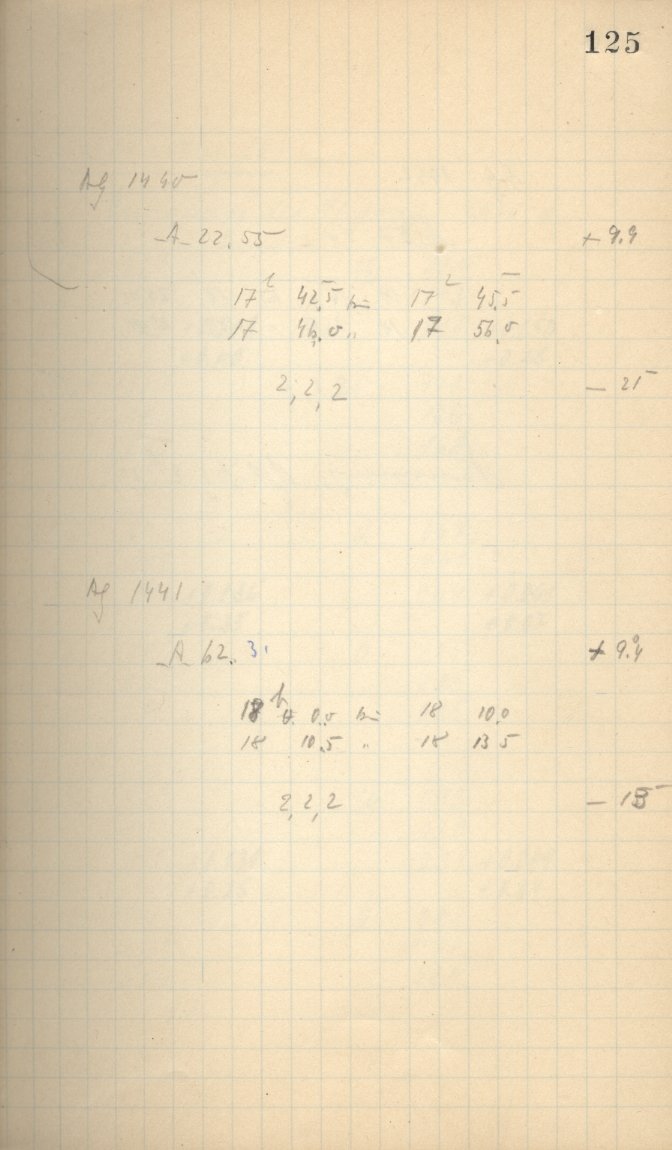 125
Ag 1440
A 22.55 + 9.9
17 h 42,5 bis 17 h 45,5
17 46,0 „ 17 56,0
2, 2, 2 – 25
Ag 1441
A 62. 3. + 9.4
18 h 0,0 bis 18 10,0
18 10,5 „ 18 13 5
2, 2, 2